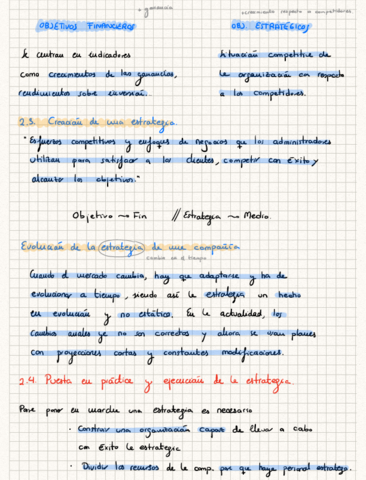 + ganancia
crecimiento respecto a competidores
OBJETIVOS FINANCIEROS
OBJ. ESTRATÉGICOS
Se centran en indicadores
como crecimientos de las ganancias,
rendimientos sobre inversión..
Situación competitiva de
la organización con respecto
a los competidores.
2.3. Creación de una estrategia.
"Esfuerzos competitivos y enfoques de negocios que los administradores
utilizan para satisfacer a los clientes, competir con éxito y
alcanzar los objetivos."
Objetivo → Fin // Estrategia → Medio
Evolución de la estrategia de una compañía
cambia en el tiempo
Cuando el mercado cambia, hay que adaptarse y ha de
evolucionar a tiempo, siendo así la estrategia un hecho
en evolución y no estático. En la actualidad, los
cambios anuales ya no son correctos y ahora se usan planes
con proyecciones cortas y constantes modificaciones.
2.4. Puesta en práctica y ejecución de la estrategia.
Para poner en marcha una estrategia es necesario
· Construir una organización capaz de llevar a cabo
con éxito la estrategia
· Dividir los recursos de la comp. para que haya personal estratego.